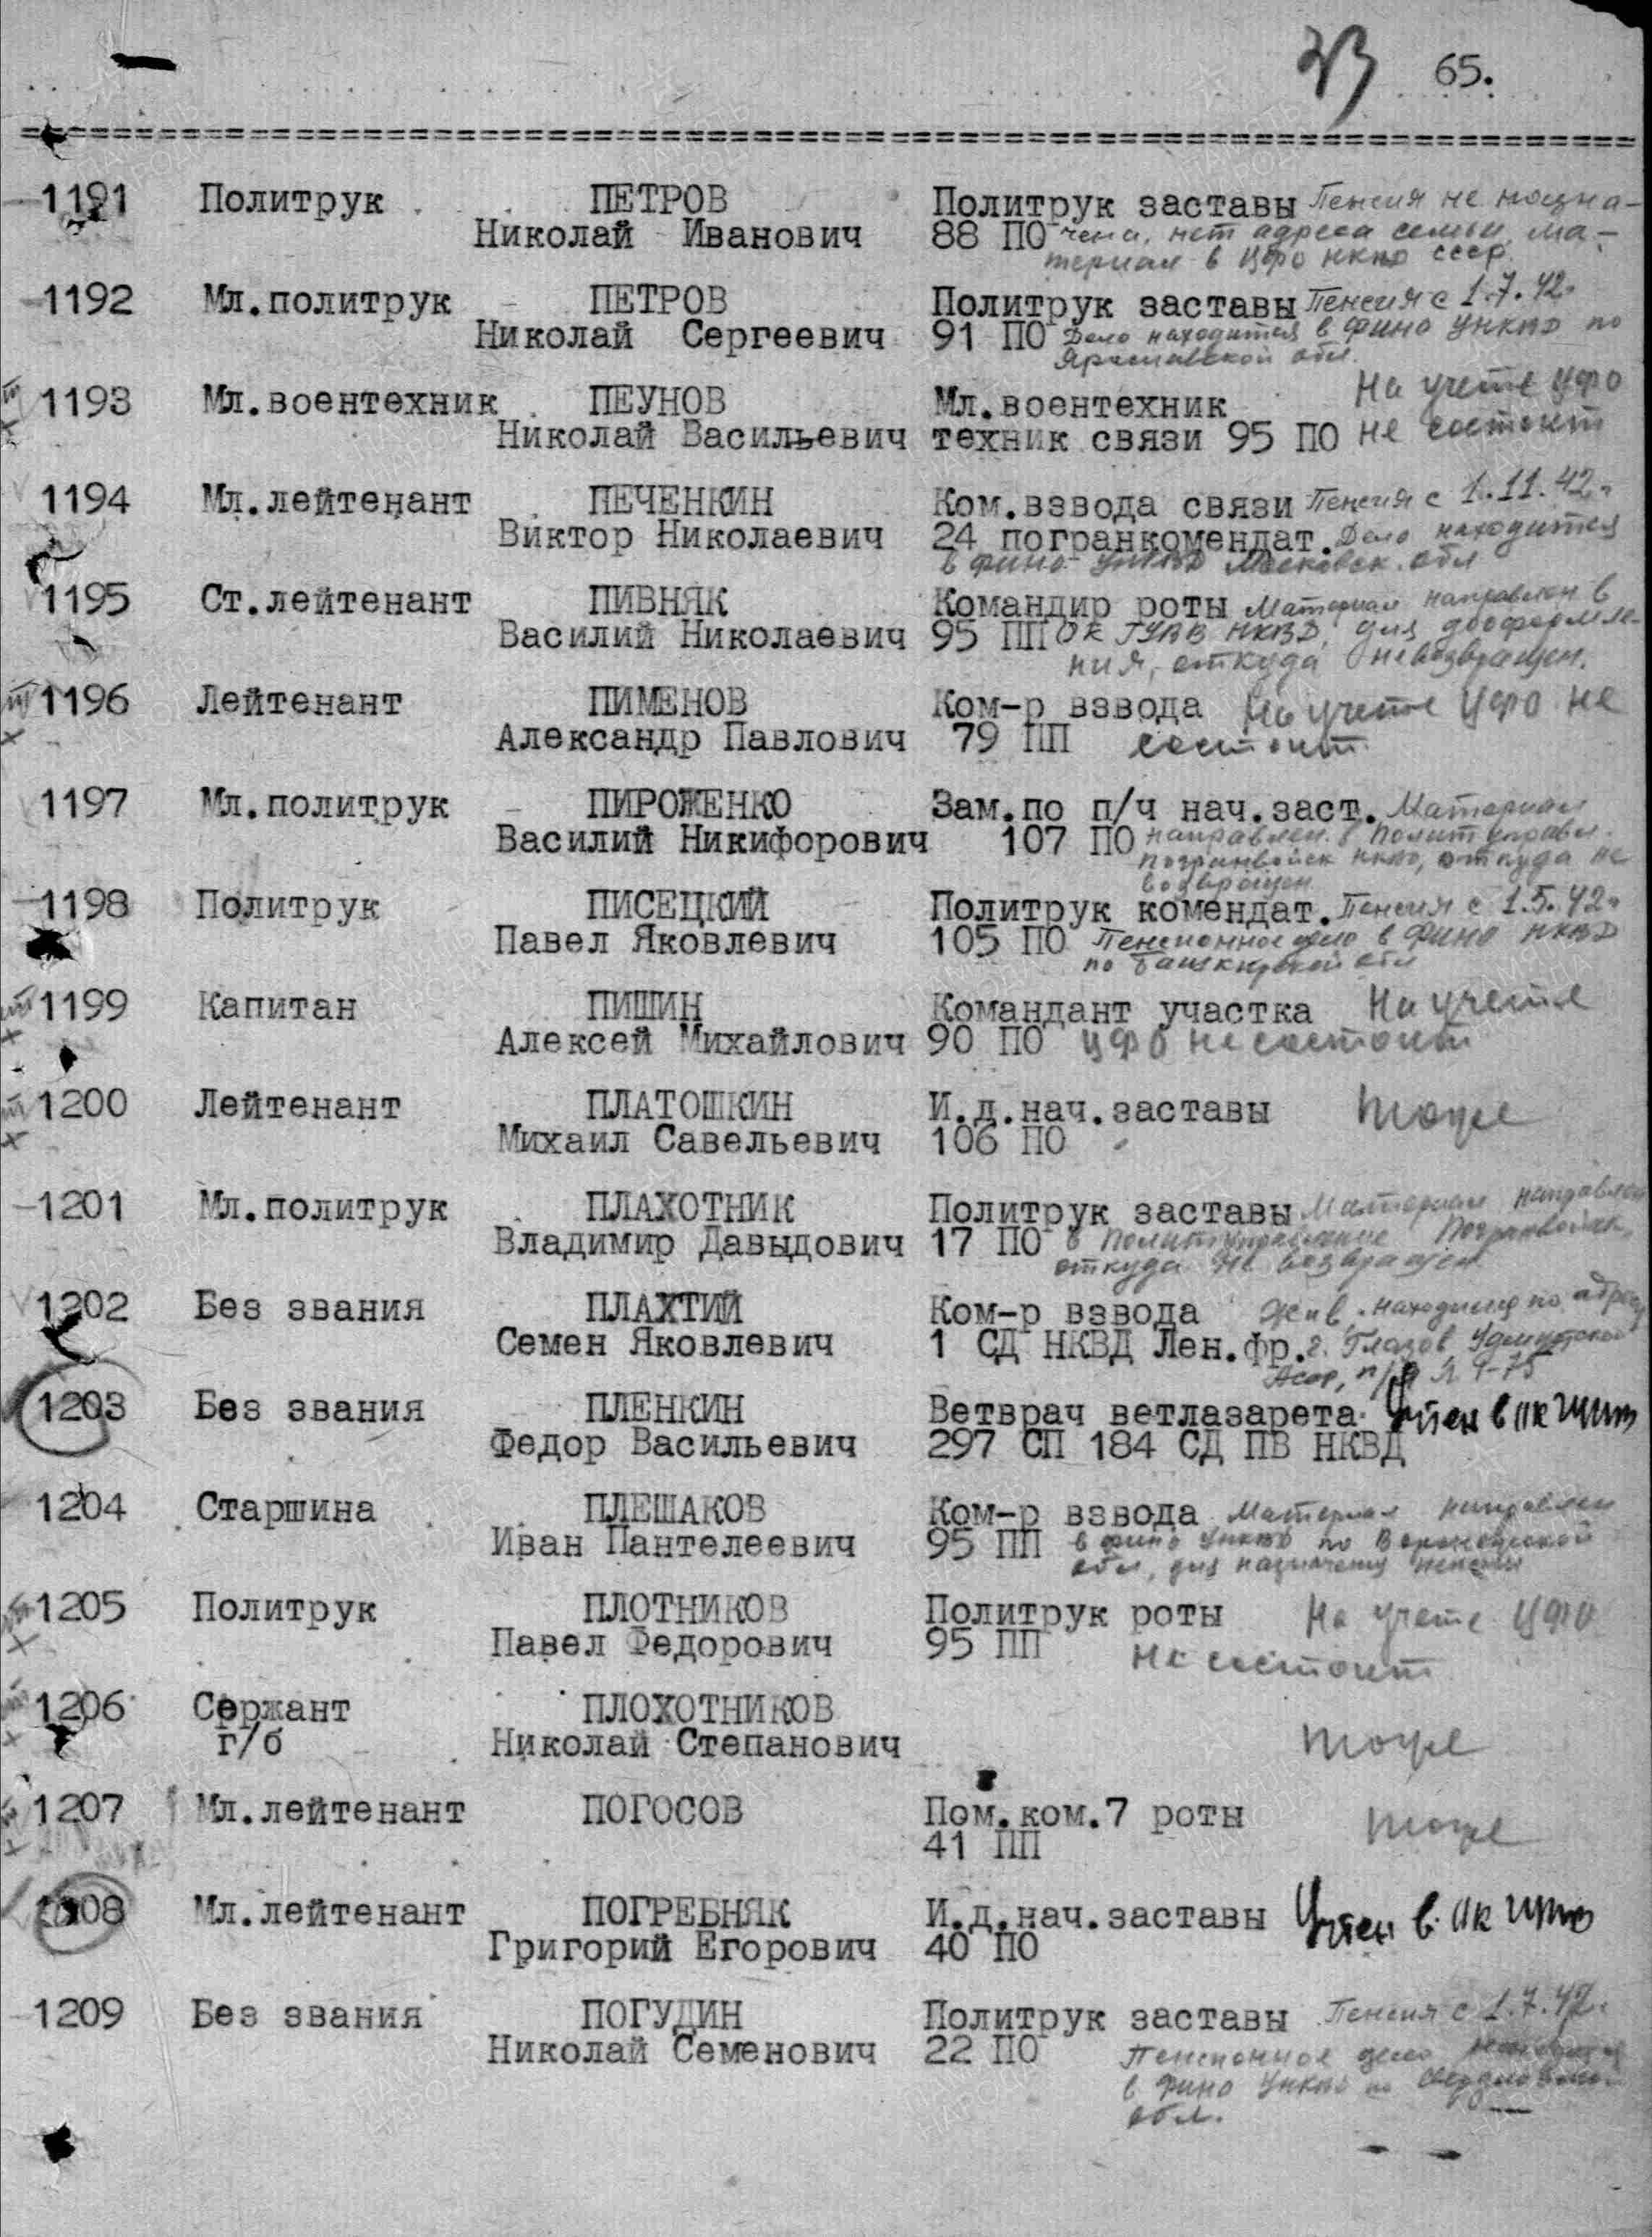 33 65.
1191 Политрук ПЕТРОВ Политрук заставы Пенсия не назна-
Николай Иванович 88 ПО чена, нет адреса семьи, ма-
териал в ЦФО НКВД СССР.
1192 Мл.политрук ПЕТРОВ Политрук заставы Пенсия с 1.7.42г.
Николай Сергеевич 91 ПО Дело находится в ФИНО УНКВД по
Ярославской обл.
1193 Мл.воентехник ПЕУНОВ Мл.воентехник На учете ЦФО
Николай Васильевич техник связи 95 ПО не состоит
1194 Мл.лейтенант ПЕЧЕНКИН Ком.взвода связи Пенсия с 1.11.42г.
Виктор Николаевич 24 погранкомендат. Дело находится
в ФИНО УНКВД Московск. обл
1195 Ст.лейтенант ПИВНЯК Командир роты Материал направлен в
Василий Николаевич 95 ПП ОК ГУВВ НКВД, для дооформле-
ния, откуда невозвращен.
1196 Лейтенант ПИМЕНОВ Ком-р взвода На учете ЦФО не
Александр Павлович 79 ПП состоит.
1197 Мл.политрук ПИРОЖЕНКО Зам.по п/ч нач.заст. Материал
Василий Никифорович 107 ПО направлен в Политуправл.
Погранвойск НКВД, откуда не
возвращен.
1198 Политрук ПИСЕЦКИЙ Политрук комендат. Пенсия с 1.5.42г.
Павел Яковлевич 105 ПО Пенсионное дело в ФИНО НКВД
по Башкирской обл
1199 Капитан ПИШИН Командант участка На учете
Алексей Михайлович 90 ПО ЦФО не состоит
1200 Лейтенант ПЛАТОШКИН И.д.нач.заставы тоже
Михаил Савельевич 106 ПО
1201 Мл.политрук ПЛАХОТНИК Политрук заставы Материал направлен
Владимир Давыдович 17 ПО в Политуправление Погранвойск,
откуда не возвращен
1202 Без звания ПЛАХТИЙ Ком-р взвода Жив, находится по адресу
Семен Яковлевич 1 СД НКВД Лен.фр. г. Глазов Удмуртской
Асср, п/я
1203 Без звания ПЛЕНКИН Ветврач ветлазарета Учтен в
Федор Васильевич 297 СП 184 СД ПВ НКВД
1204 Старшина ПЛЕШАКОВ Ком-р взвода Материал направлен
Иван Пантелеевич 95 ПП в ФИНО УНКВД по Воронежской
обл, для назначения пенсии
1205 Политрук ПЛОТНИКОВ Политрук роты На учете ЦФО
Павел Федорович 95 ПП не состоит
1206 Сержант ПЛОХОТНИКОВ
г/б Николай Степанович тоже
1207 Мл.лейтенант ПОГОСОВ Пом.ком.7 роты тоже
41 ПП
1208 Мл.лейтенант ПОГРЕБНЯК И.д.нач.заставы Учтен в
Григорий Егорович 40 ПО
1209 Без звания ПОГУДИН Политрук заставы Пенсия с 1.7.42г.
Николай Семенович 22 ПО Пенсионное дело находится
в ФИНО УНКВД по Свердловской
обл.